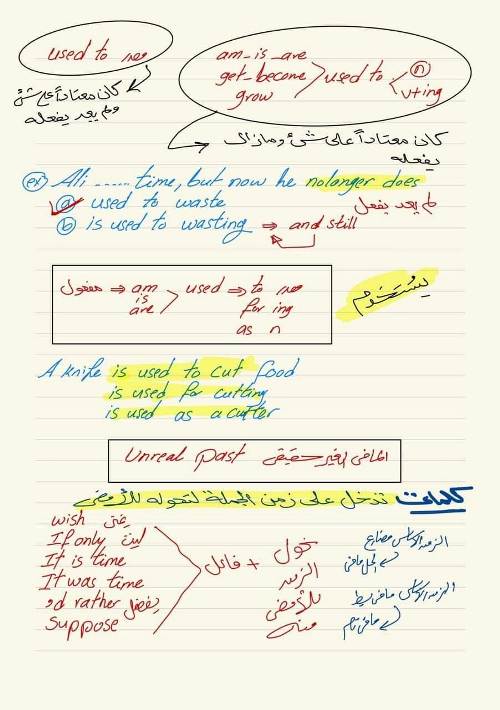 used to مصدر
كان معتاداً على شئ
ولم يعد يفعله
am_is_are
get_become
grow
used to
n
v+ing
كان معتاداً على شئ ومازال
يفعله
ex Ali ...... time, but now he no longer does
لم يعد يفعل
a used to waste
b is used to wasting ⇒ and still
مفعول ⇒ am
is
are
used ⇒ to مصدر
for ing
as n
يُستخدم
A knife is used to cut food
is used for cutting
is used as a cutter
Unreal past الماضى الغير حقيقى
كلمات تدخل على زمن الجملة لتحوله للأمضى
wish يتمنى
If only ليت
It is time
It was time
'd rather يفضل
Suppose
+ فاعل
حول
الزمن
للأمضى
منه
الزمن الأساسى مضارع
الحل ماضى
الزمن الأساسى ماضى بسيط
ماضى تام